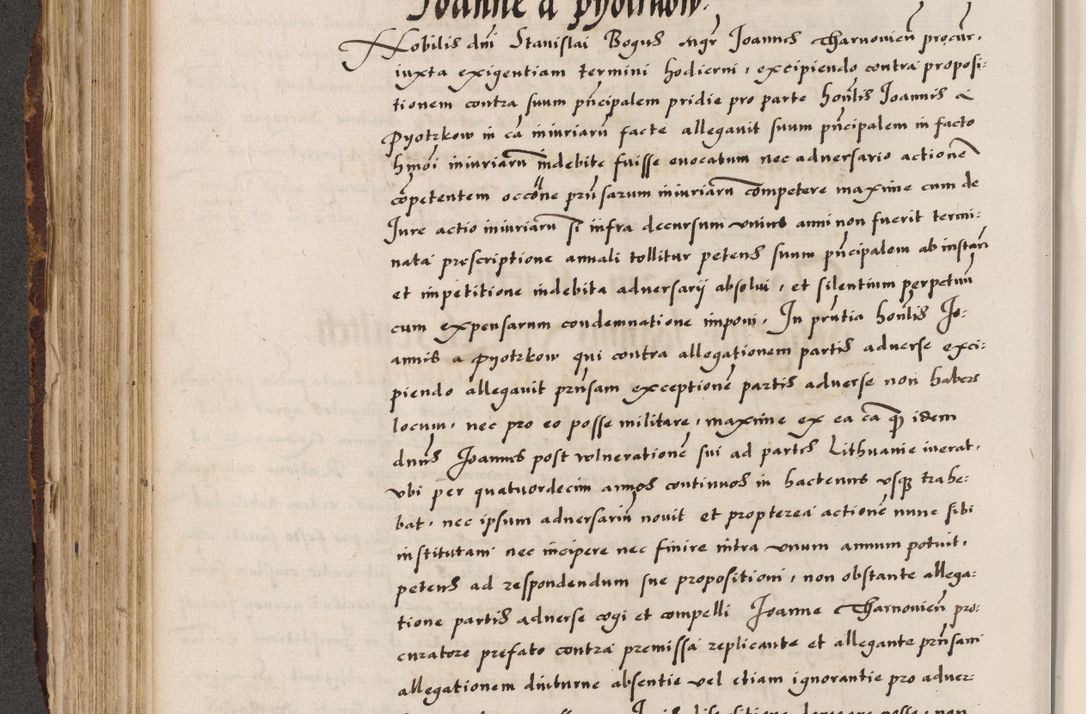 Joanne a pyotrkow.
Nobilis dni Stanislai Bogus Mgr Joannes Tharnovien procur.
iuxta exigentiam termini hodierni, excipiendo contra proposi:
tionem contra suum pncipalem pridie pro parte honlis Joannis a
Pyotrkow in ca iniuriaru facte allegauit suum pncipalem in facto
hmoi iniuriaru indebite fuisse euocatum nec aduersario actione
copetentem occone prnsarum iniuriaru competere maxime cum de
Jure actio iniuriaru si infra decursum vnius anni non fuerit termi:
nata prescriptione annali tollitur petens suum pncipalem ab instan
et impetitione indebita aduersarij absolui, et silentium perpetuu
cum expensarum condemnatione imponi. In prntia honlis Jo:
annis a Pyotrkow qui contra allegationem partis aduerse exci:
piendo allegauit prnsam exceptione partis aduerse non habere
locum, nec pro eo posse militare, maxime ex ea ca q idem
dnus Joannes post vulneratione sui ad partes Lithuanie iuerat,
vbi per quatuordecim annos continuos in hactenus vsq trahe:
bat, nec ipsum aduersariu nouit et propterea actione nunc sibi
institutam nec incipere nec finire intra vnum annum potuit,
petens ad respondendum sue propositioni, non obstante allega:
tione partis aduerse cogi et compelli Joanne Tharnovien pro:
curatore prefato contra premissa replicante et allegante prnsam
allegationem diuturne absentie vel etiam ignorantie pro aduer: